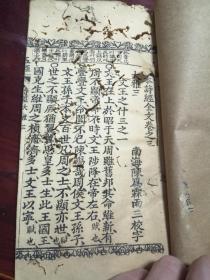 詩經全文卷之三
南海陳為霖雨三校字
大雅三
文王之什三之一
文王在上於昭于天周雖舊邦其命維新有
周不顯帝命不時文王陟降在帝左右賦也
亹亹文王令聞不已陳錫哉周侯文王孫子
文王孫子本支百世凡周之士不顯亦世賦也
世之不顯厥猶翼翼思皇多士生此王國王
國克生維周之楨濟濟多士文王以寧賦也